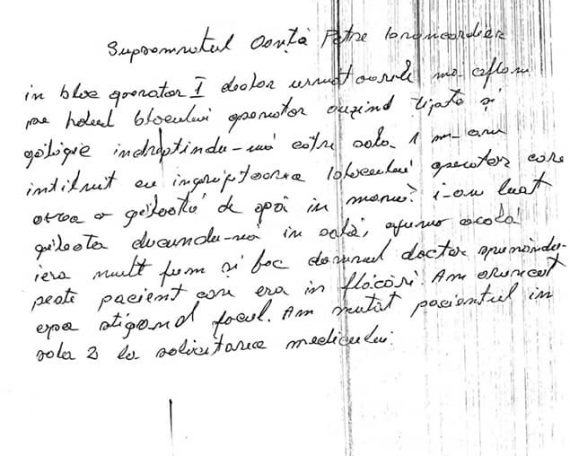 Subsemnatul Oanță Petre brancardier
in bloc operator I declar urmatoarele ma aflam
pe holul blocului operator auzind țipete și
gălăgie indreptindu-mă către sala 1 m-am
intilnit cu ingrijitoarea blocului operator care
avea o găleată de apă in mană? i-am luat
găleata ducandu-mă in sală, ajuns acolo
iera mult fum și foc domnul doctor
peste pacient care era in flăcări. Am aruncat
apa stigand focul. Am mutat pacientul in
sala 2 la solicitarea medicului.